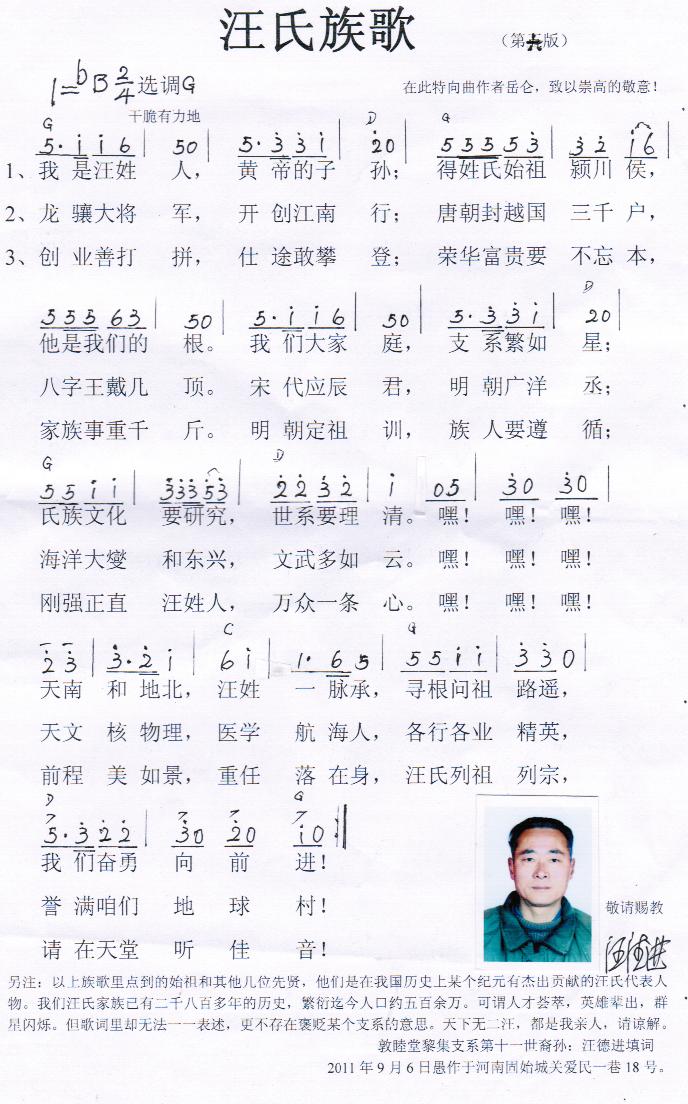 汪氏族歌
（第六版）
1=bB 2/4 选调G
在此特向曲作者岳仑，致以崇高的敬意！
干脆有力地
G D G
5·i̇ i̇ 6 | 5 0 | 5·3̇ 3̇ i̇ | 2̇ 0 | 5 5 5 5 3̇ | 3̇ 2̇ i̇ 6 |
1、我 是汪姓 人， 黄 帝的子 孙； 得姓氏始祖 颍川 侯，
2、龙 骧大将 军， 开 创江南 行； 唐朝封越国 三千 户，
3、创 业善打 拼， 仕 途敢攀 登； 荣华富贵要 不忘 本，
D
5 5 5 6 3 | 5 0 | 5·i̇ i̇ 6 | 5 0 | 5·3̇ 3̇ i̇ | 2̇ 0 |
他是我们的 根。 我 们大家 庭， 支 系繁如 星；
八字王戴几 顶。 宋 代应辰 君， 明 朝广洋 丞；
家族事重千 斤。 明 朝定祖 训， 族 人要遵 循；
G D
5 5 i̇ i̇ | 3̇ 3̇ 3̇ 5 3̇ | 2̇ 2̇ 3̇ 2̇ | i̇ | 0 5 | 3̇ 0 | 3̇ 0 |
氏族文化 要研究， 世系要理 清。 嘿！ 嘿！ 嘿！
海洋大燮 和东兴， 文武多如 云。 嘿！ 嘿！ 嘿！
刚强正直 汪姓人， 万众一条 心。 嘿！ 嘿！ 嘿！
C G
2̇ 3̇ | 3̇·2̇ i̇ | 6 i̇ | 1·6 5 | 5 5 i̇ i̇ | 3̇ 3̇ 0 |
天南 和 地北，汪姓 一 脉承，寻根问祖 路遥，
天文 核 物理，医学 航 海人，各行各业 精英，
前程 美 如景，重任 落 在身，汪氏列祖 列宗，
D G
5·3̇ 2̇ 2̇ | 3̇ 0 2̇ 0 | i̇ 0 ‖
我 们奋勇 向 前 进！
誉 满咱们 地 球 村！
请 在天堂 听 佳 音！
敬请赐教
汪德进
另注：以上族歌里点到的始祖和其他几位先贤，他们是在我国历史上某个纪元有杰出贡献的汪氏代表人
物。我们汪氏家族己有二千八百多年的历史，繁衍迄今人口约五百余万。可谓人才荟萃，英雄辈出，群
星闪烁。但歌词里却无法一一表述，更不存在褒贬某个支系的意思。天下无二汪，都是我亲人，请谅解。
敦睦堂黎集支系第十一世裔孙：汪德进填词
2011 年 9 月 6 日愚作于河南固始城关爱民一巷 18 号。